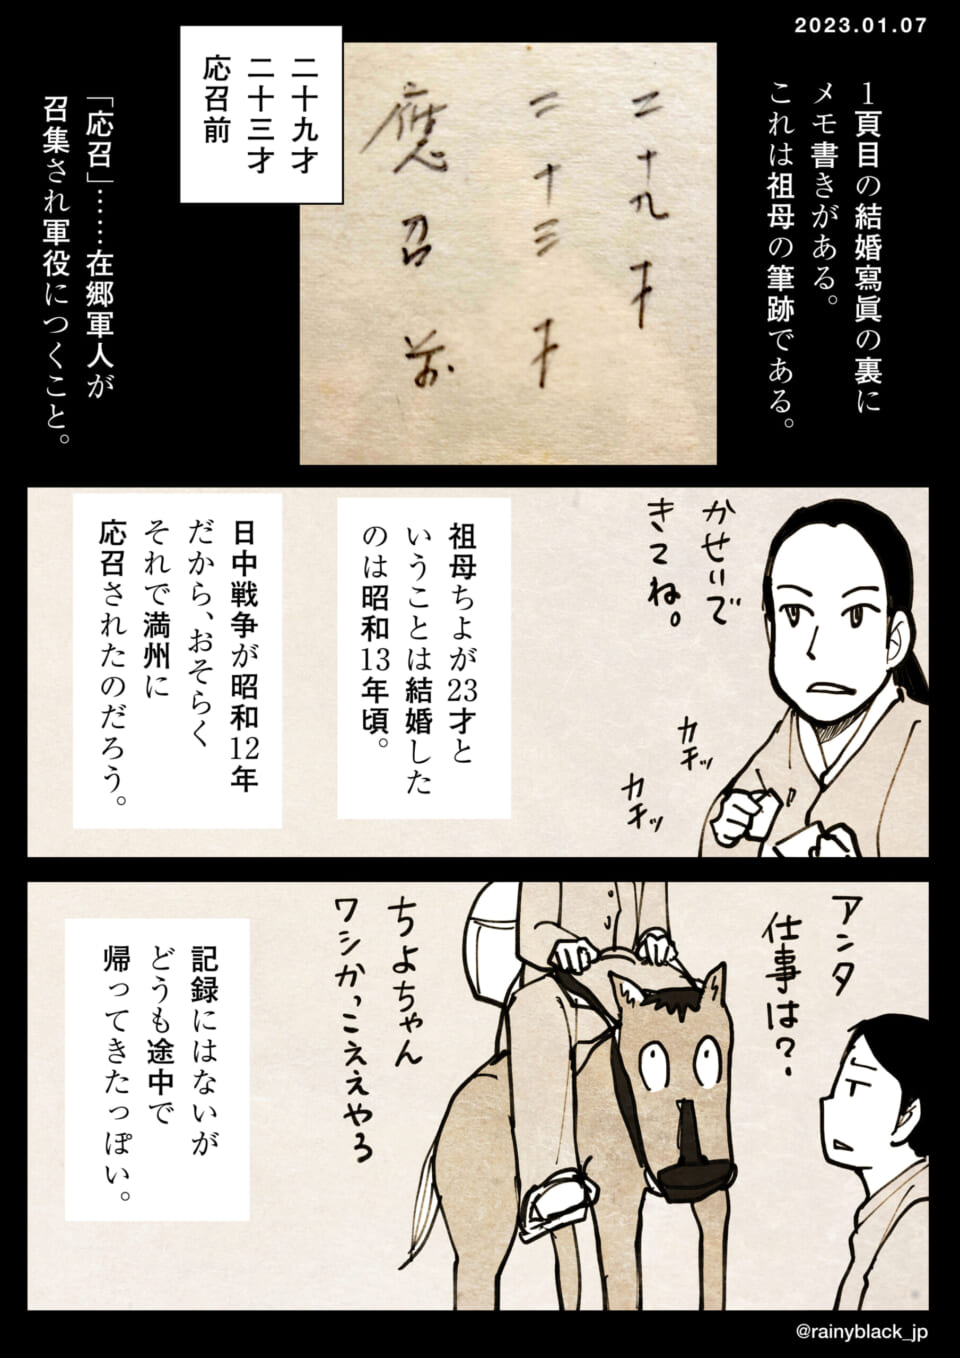 2023.01.07
1頁目の結婚寫眞の裏に
メモ書きがある。
これは祖母の筆跡である。
二十九才
二十三才
應召前
二十九才
二十三才
応召前
「応召」……在郷軍人が
召集され軍役につくこと。
かせいで
きてね。
カチッ
カチッ
祖母ちよが23才と
いうことは結婚した
のは昭和13年頃。
日中戦争が昭和12年
だから、おそらく
それで満州に
応召されたのだろう。
アンタ
仕事は?
ちよちゃん
ワシかっこええやろ
記録にはないが
どうも途中で
帰ってきたっぽい。
@rainyblack_jp